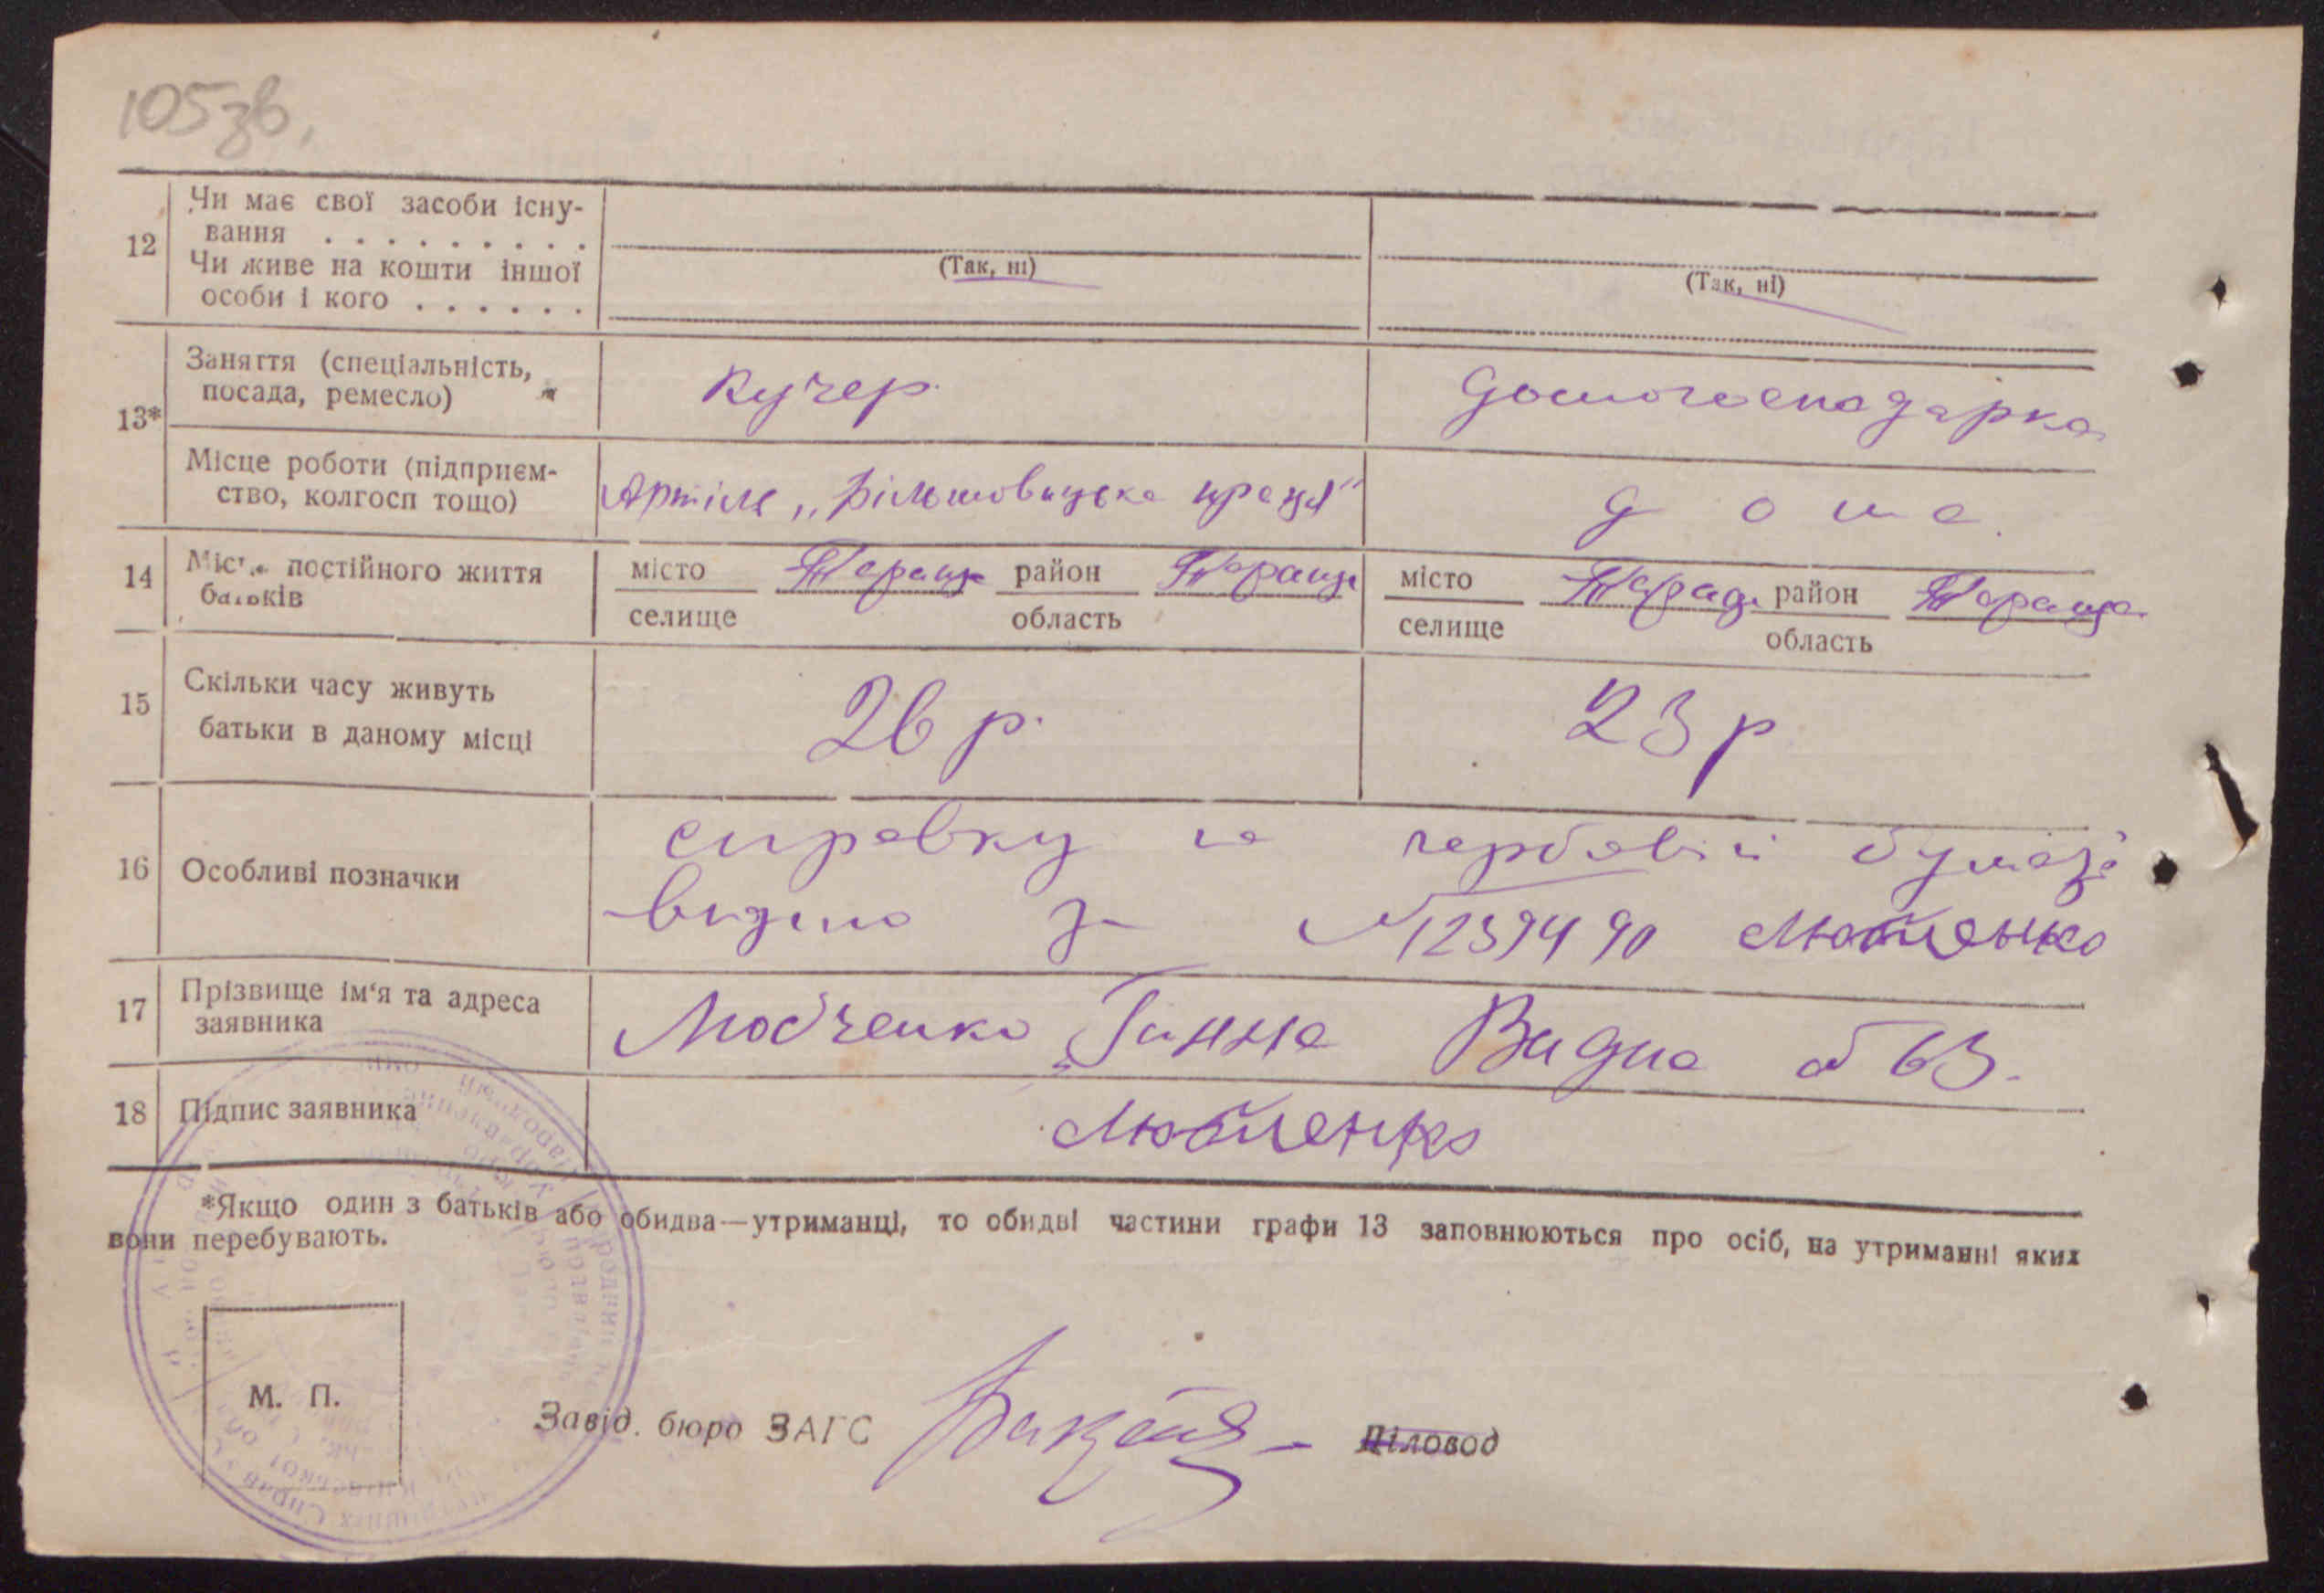 105зв.
12 Чи має свої засоби існу-
вання . . . . . . . . .
Чи живе на кошти іншої
особи і кого . . . . . .
(Так, ні) (Так, ні)
13* Заняття (спеціальність,
посада, ремесло)
кучер. домогосподарка
Місце роботи (підприєм-
ство, колгосп тощо)
Артіль „Більшовицька праця" дома.
14 Місце постійного життя
батьків
місто Тараща район Тараща місто Тараща район Тараща
селище область селище область
15 Скільки часу живуть
батьки в даному місці
26 р. 23 р
16 Особливі позначки
справку на гербовій бумазі
видано за №
17 Прізвище ім'я та адреса
заявника
Любченко Ганна б 63.
18 Підпис заявника
Любченко
*Якщо один з батьків або обидва—утриманці, то обидві частини графи 13 заповнюються про осіб, на утриманні яких
вони перебувають.
М. П.
Завід. бюро ЗАГС Діловод